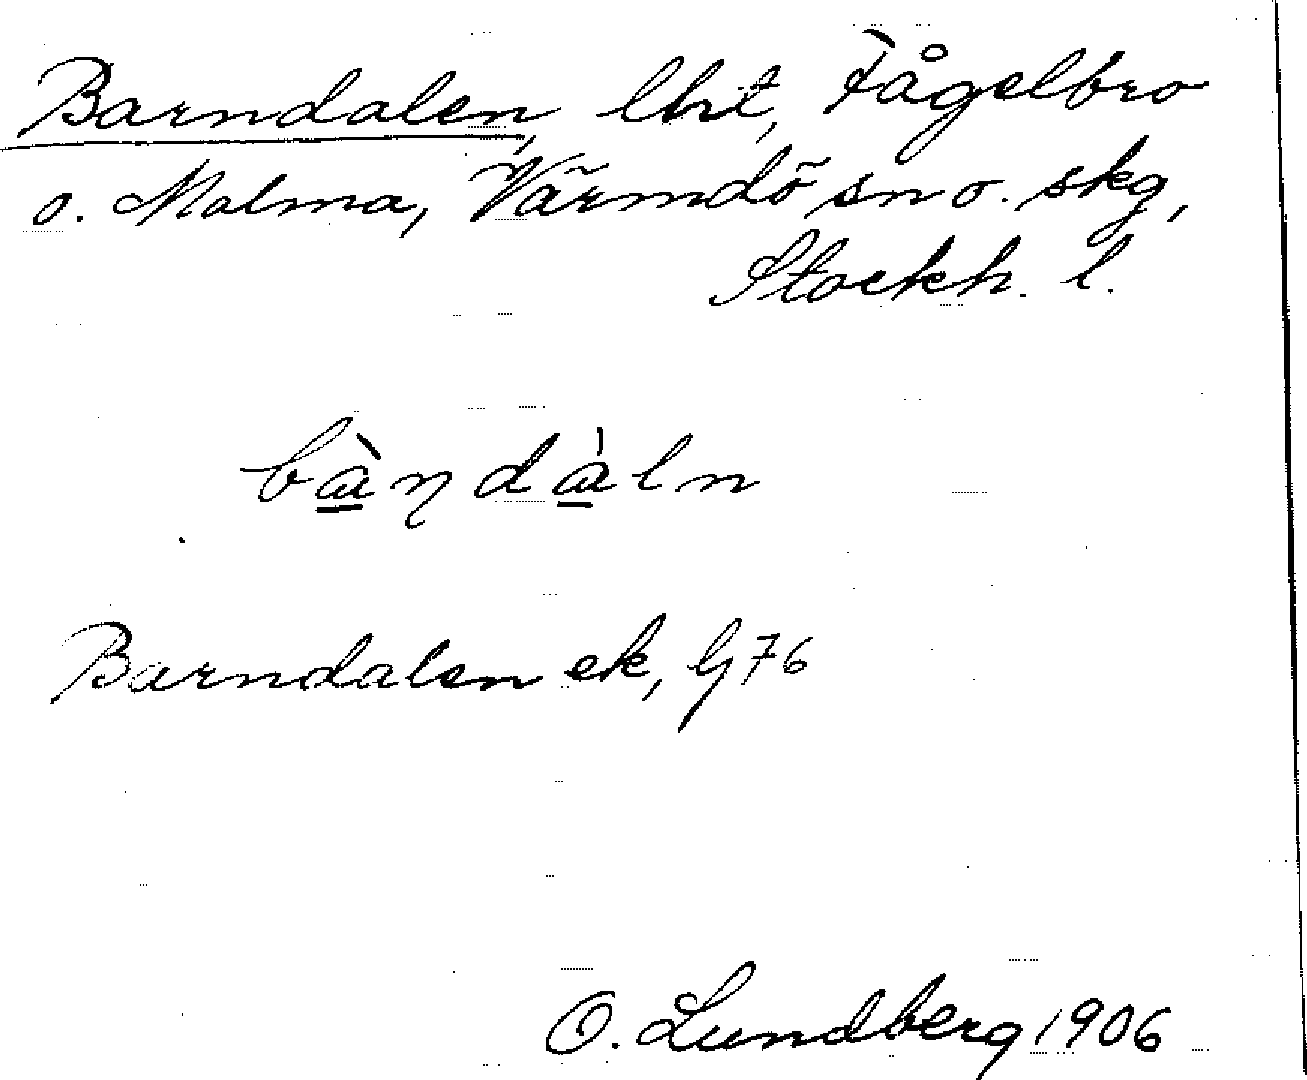 Barndalen, lht, Fågelbro
o. Malma, Värmdö sn o. skg,
Stockh. l.
bàṇdàln
Barndalen ek, G 76
O. Lundberg 1906